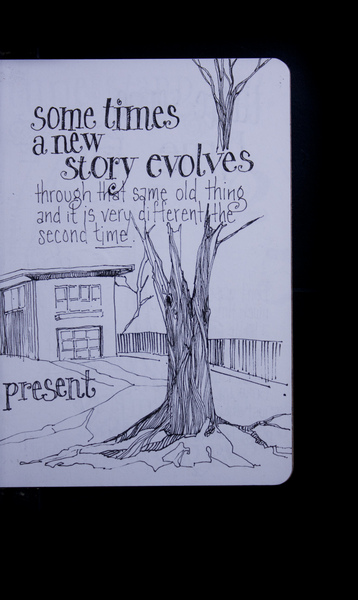 some times
a new
story evolves
through that same old thing
and it is very different the
second time.
present